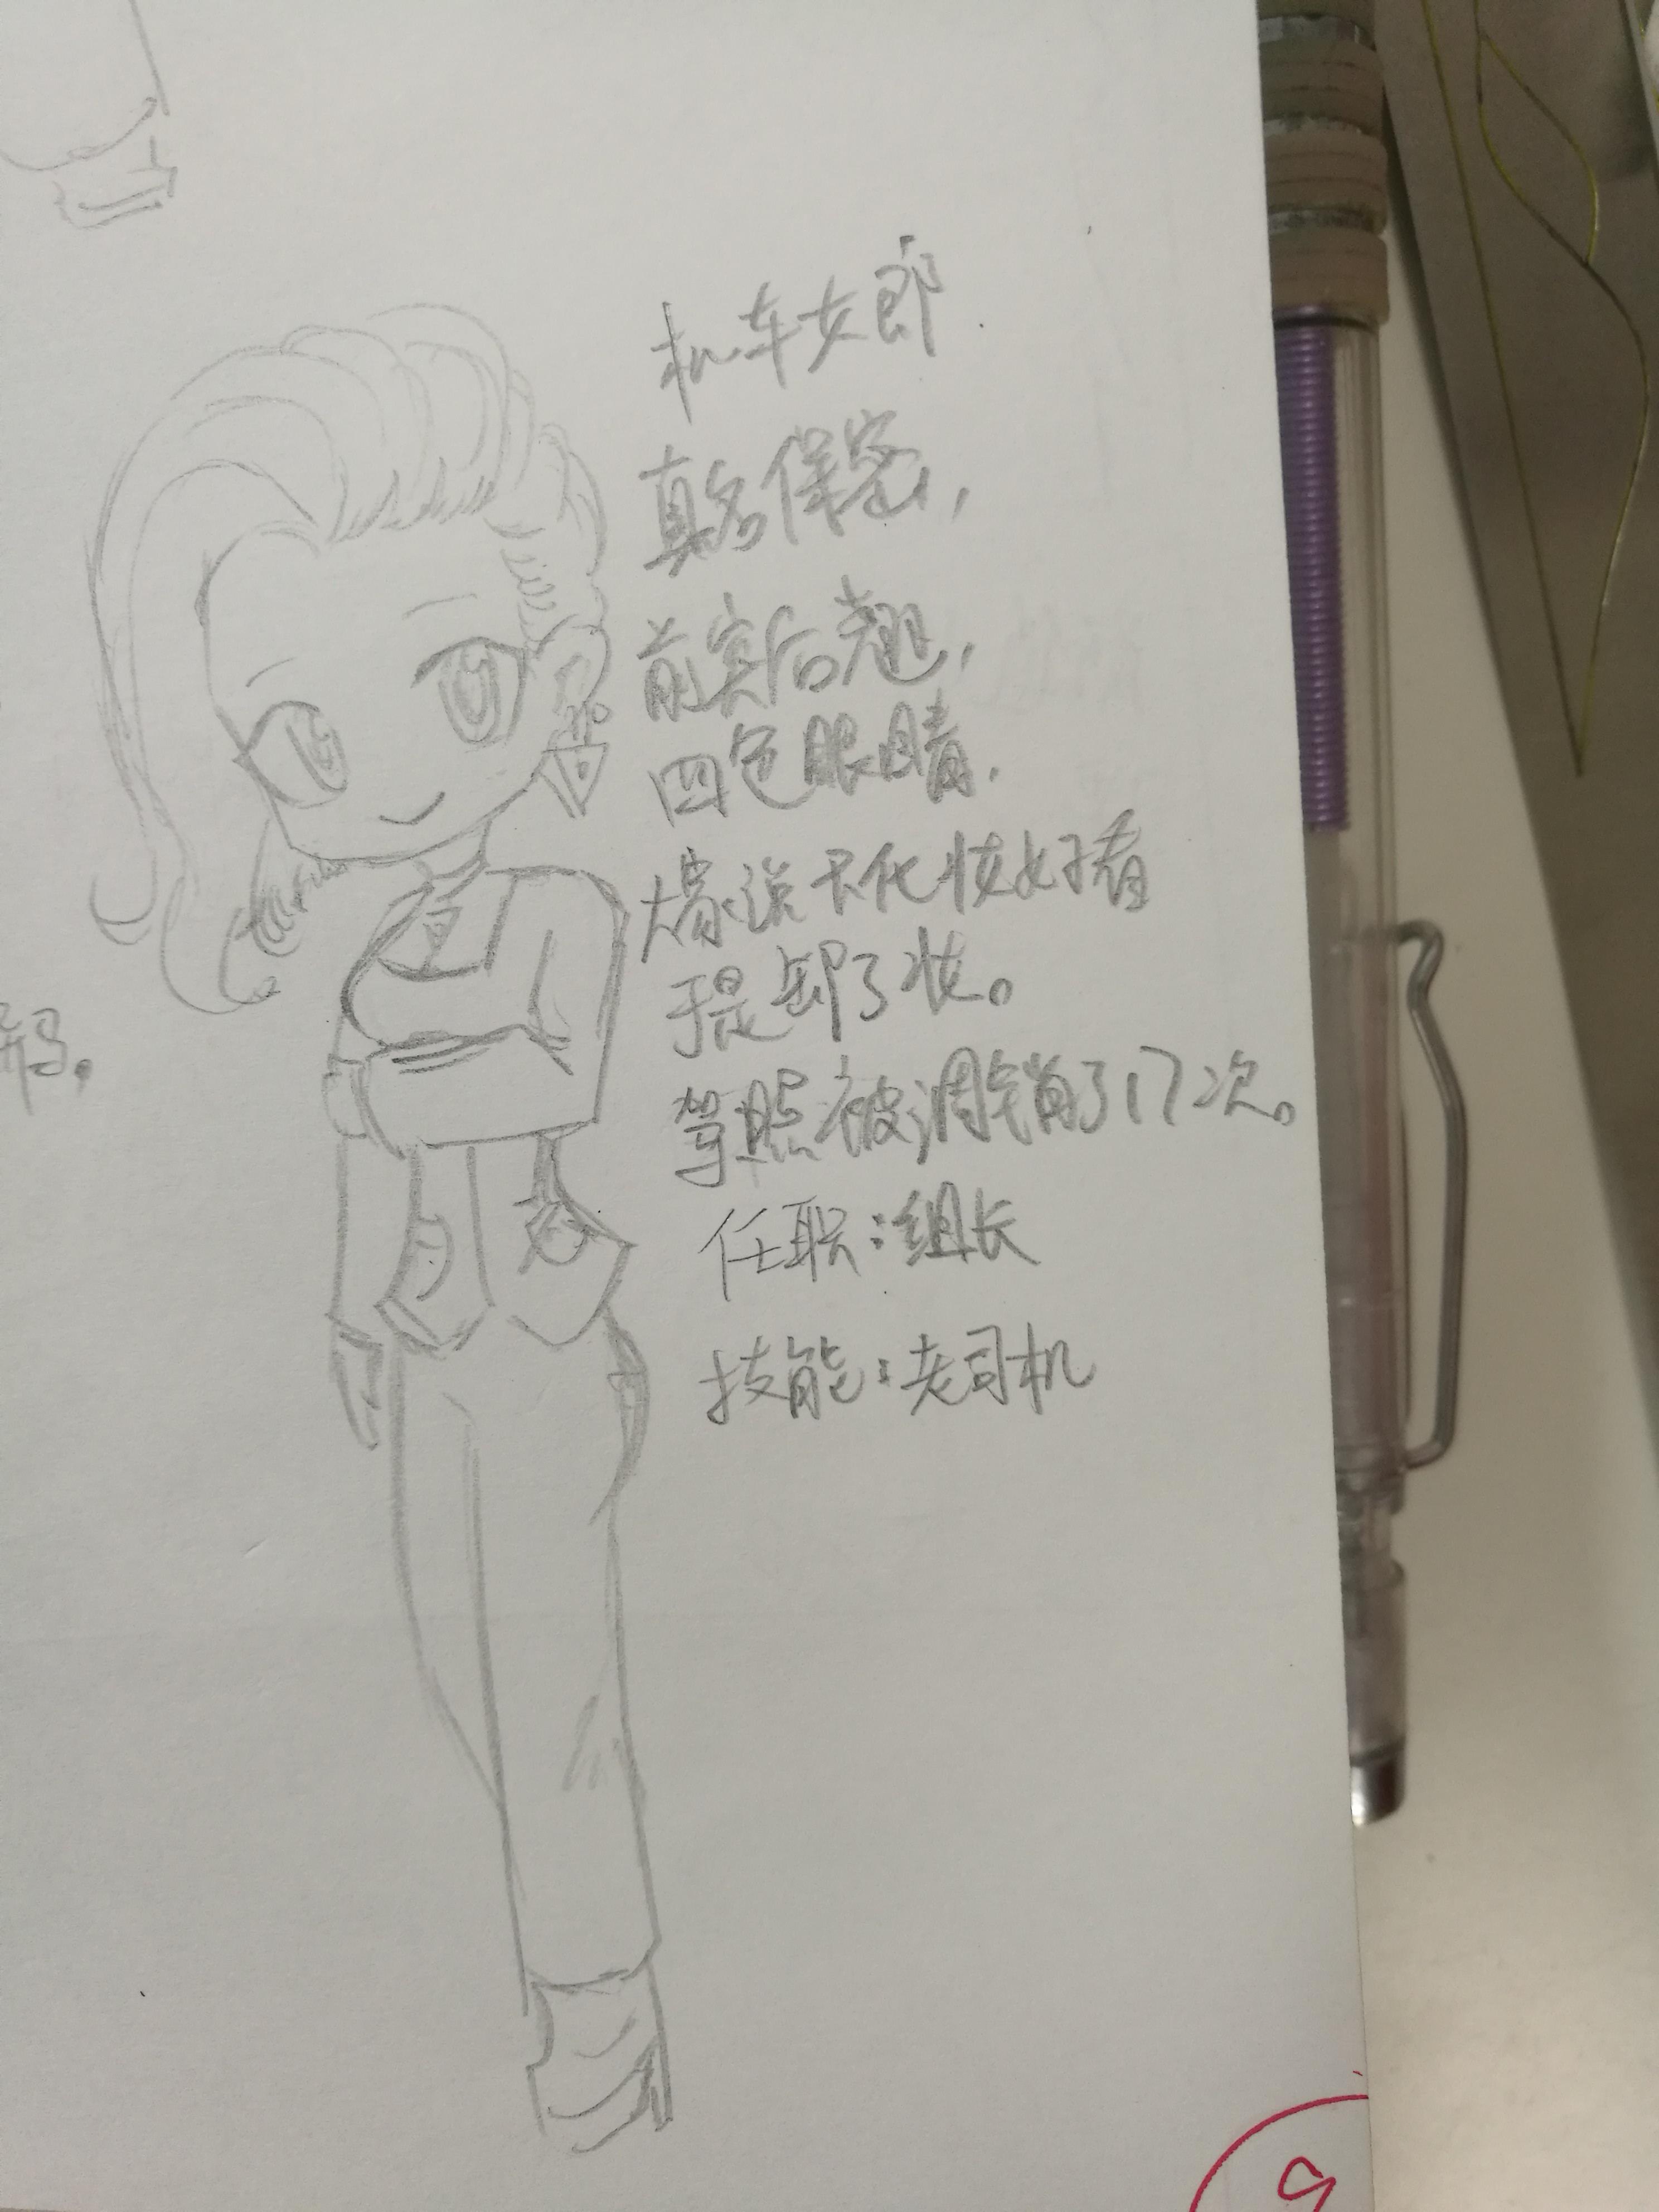 机车女郎
真名保密,
前突后翘,
四色眼睛.
大家说不化妆好看
于是卸了妆。
驾照被调销了17次。
任职:组长
技能:老司机
码。
9